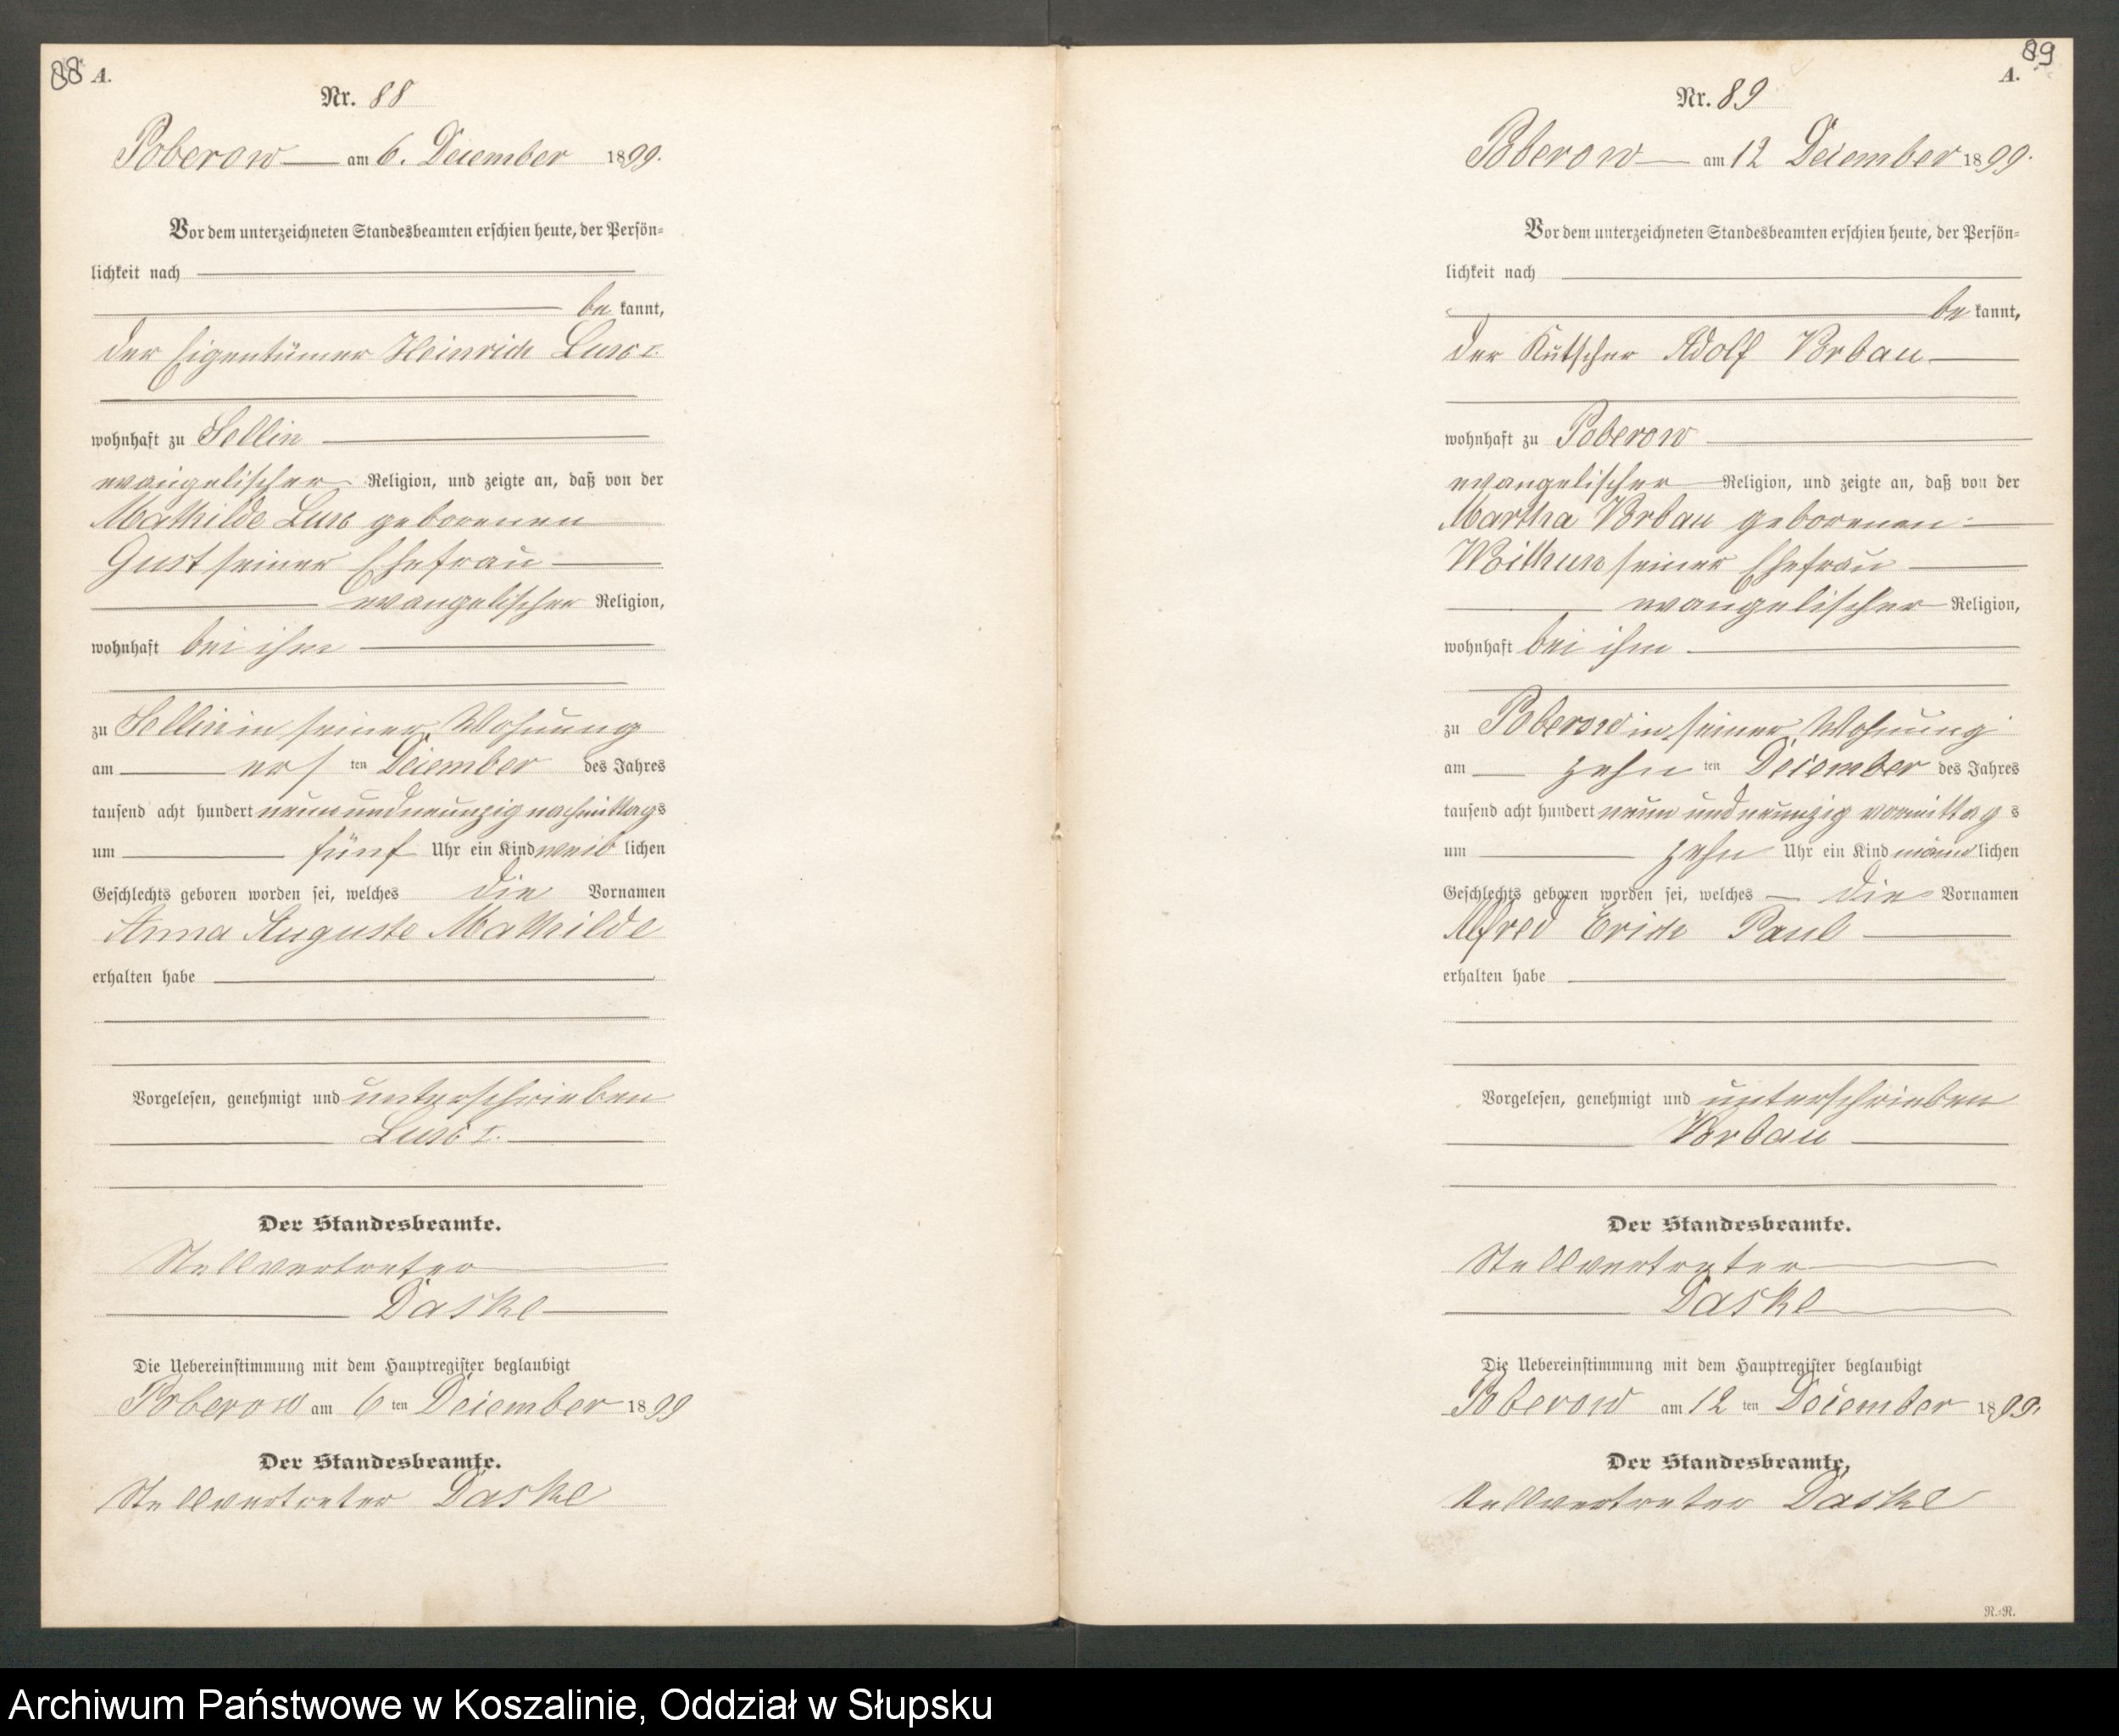 88 A.
Nr. 88
Poberow am 6. Dezember 1899.
Vor dem unterzeichneten Standesbeamten erschien heute, der Persön-
lichkeit nach
be kannt,
der Eigentümer Heinrich I.
wohnhaft zu Sellin
evangelischer Religion, und zeigte an, daß von der
Mathilde geborenen
Gust seiner Ehefrau
evangelischer Religion,
wohnhaft bei ihm
zu Sellin in seiner Wohnung
am ersten Dezember des Jahres
tausend acht hundert neun und neunzig nachmittags
um fünf Uhr ein Kind weiblichen
Geschlechts geboren worden sei, welches die Vornamen
Anna Auguste Mathilde
erhalten habe
Vorgelesen, genehmigt und unterschrieben
I.
Der Standesbeamte.
Stellvertreter
Daske
Die Uebereinstimmung mit dem Hauptregister beglaubigt
Poberow am 6ten Dezember 1899
Der Standesbeamte.
Stellvertreter Daske
89
A.
Nr. 89
Poberow am 12 Dezember 1899.
Vor dem unterzeichneten Standesbeamten erschien heute, der Persön-
lichkeit nach
be kannt,
der Kutscher Adolf Vorbau
wohnhaft zu Poberow
evangelischer Religion, und zeigte an, daß von der
Martha Vorbau geborenen
seiner Ehefrau
evangelischer Religion,
wohnhaft bei ihm
zu Poberow in seiner Wohnung
am zehnten Dezember des Jahres
tausend acht hundert neun und neunzig vormittags
um zehn Uhr ein Kind männlichen
Geschlechts geboren worden sei, welches die Vornamen
Alfred Erich Paul
erhalten habe
Vorgelesen, genehmigt und unterschrieben
Vorbau
Der Standesbeamte.
Stellvertreter
Daske
Die Uebereinstimmung mit dem Hauptregister beglaubigt
Poberow am 12ten Dezember 1899.
Der Standesbeamte,
Stellvertreter Daske
R.=R.
Archiwum Państwowe w Koszalinie, Oddział w Słupsku